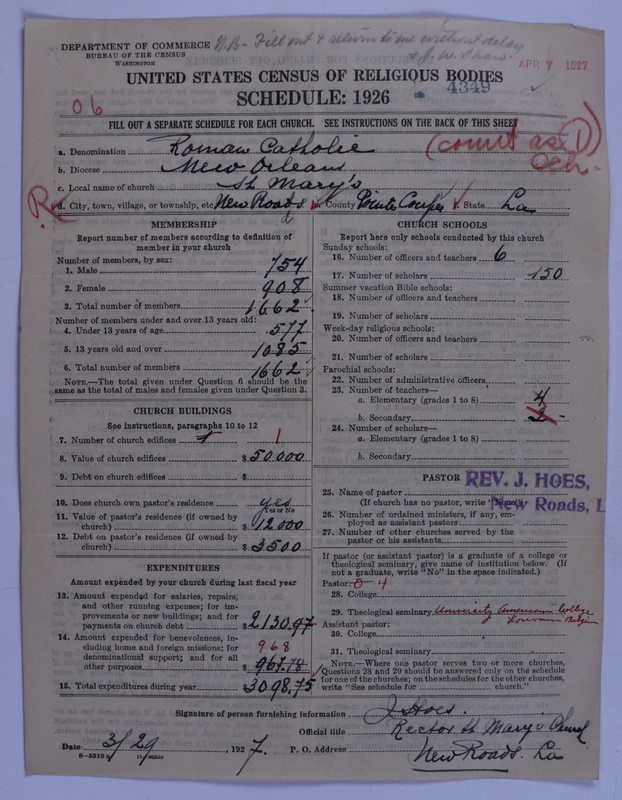 DEPARTMENT OF COMMERCE
BUREAU OF THE CENSUS
WASHINGTON
N.B- Fill out & return to me without delay
J. W. Shaw.
APR 7 1927
4349
UNITED STATES CENSUS OF RELIGIOUS BODIES
SCHEDULE: 1926
06
FILL OUT A SEPARATE SCHEDULE FOR EACH CHURCH. SEE INSTRUCTIONS ON THE BACK OF THIS SHEET
(count as 1)
a. Denomination Roman Catholic
b. Diocese New Orleans
c. Local name of church St Mary's
R
d. City, town, village, or township, etc. New Roads County Pointe Coupee State La
MEMBERSHIP
Report number of members according to definition of member in your church
Number of members, by sex:
1. Male 754
2. Female 908
3. Total number of members 1662
Number of members under and over 13 years old:
4. Under 13 years of age 577
5. 13 years old and over 1085
6. Total number of members 1662
NOTE.—The total given under Question 6 should be the
same as the total of males and females given under Question 3.
CHURCH BUILDINGS
See instructions, paragraphs 10 to 12
7. Number of church edifices 1 1
8. Value of church edifices $50.000
9. Debt on church edifices $
10. Does church own pastor's residence yes
Yes or No
11. Value of pastor's residence (if owned by
church) $12000
12. Debt on pastor's residence (if owned by
church) $3500
EXPENDITURES
Amount expended by your church during last fiscal year
13. Amount expended for salaries, repairs,
and other running expenses; for im-
provements or new buildings; and for
payments on church debt $2130.97
14. Amount expended for benevolences, in-
cluding home and foreign missions; for
denominational support; and for all
other purposes 968
$967.78
15. Total expenditures during year $3098.75
CHURCH SCHOOLS
Report here only schools conducted by this church
Sunday schools:
16. Number of officers and teachers 6
17. Number of scholars 150
Summer vacation Bible schools:
18. Number of officers and teachers
19. Number of scholars
Week-day religious schools:
20. Number of officers and teachers
21. Number of scholars
Parochial schools:
22. Number of administrative officers
23. Number of teachers—
a. Elementary (grades 1 to 8) 4
b. Secondary 2
24. Number of scholars—
a. Elementary (grades 1 to 8)
b. Secondary
PASTOR
REV. J. HOES,
New Roads, L
25. Name of pastor
(If church has no pastor, write "None")
26. Number of ordained ministers, if any, em-
ployed as assistant pastors
27. Number of other churches served by the
pastor or his assistants
If pastor (or assistant pastor) is a graduate of a college or
theological seminary, give name of institution below. (If
not a graduate, write "No" in the space indicated.)
Pastor: 0 4
28. College
29. Theological seminary University American College
Louvain Belgium
Assistant pastor:
30. College
31. Theological seminary
NOTE.—Where one pastor serves two or more churches,
Questions 28 and 29 should be answered only on the schedule
for one of the churches; on the schedules for the other churches,
write "See schedule for church."
Signature of person furnishing information J Hoes.
Official title Rector St Mary's Church
Date 3/29, 1927. P. O. Address New Roads. La